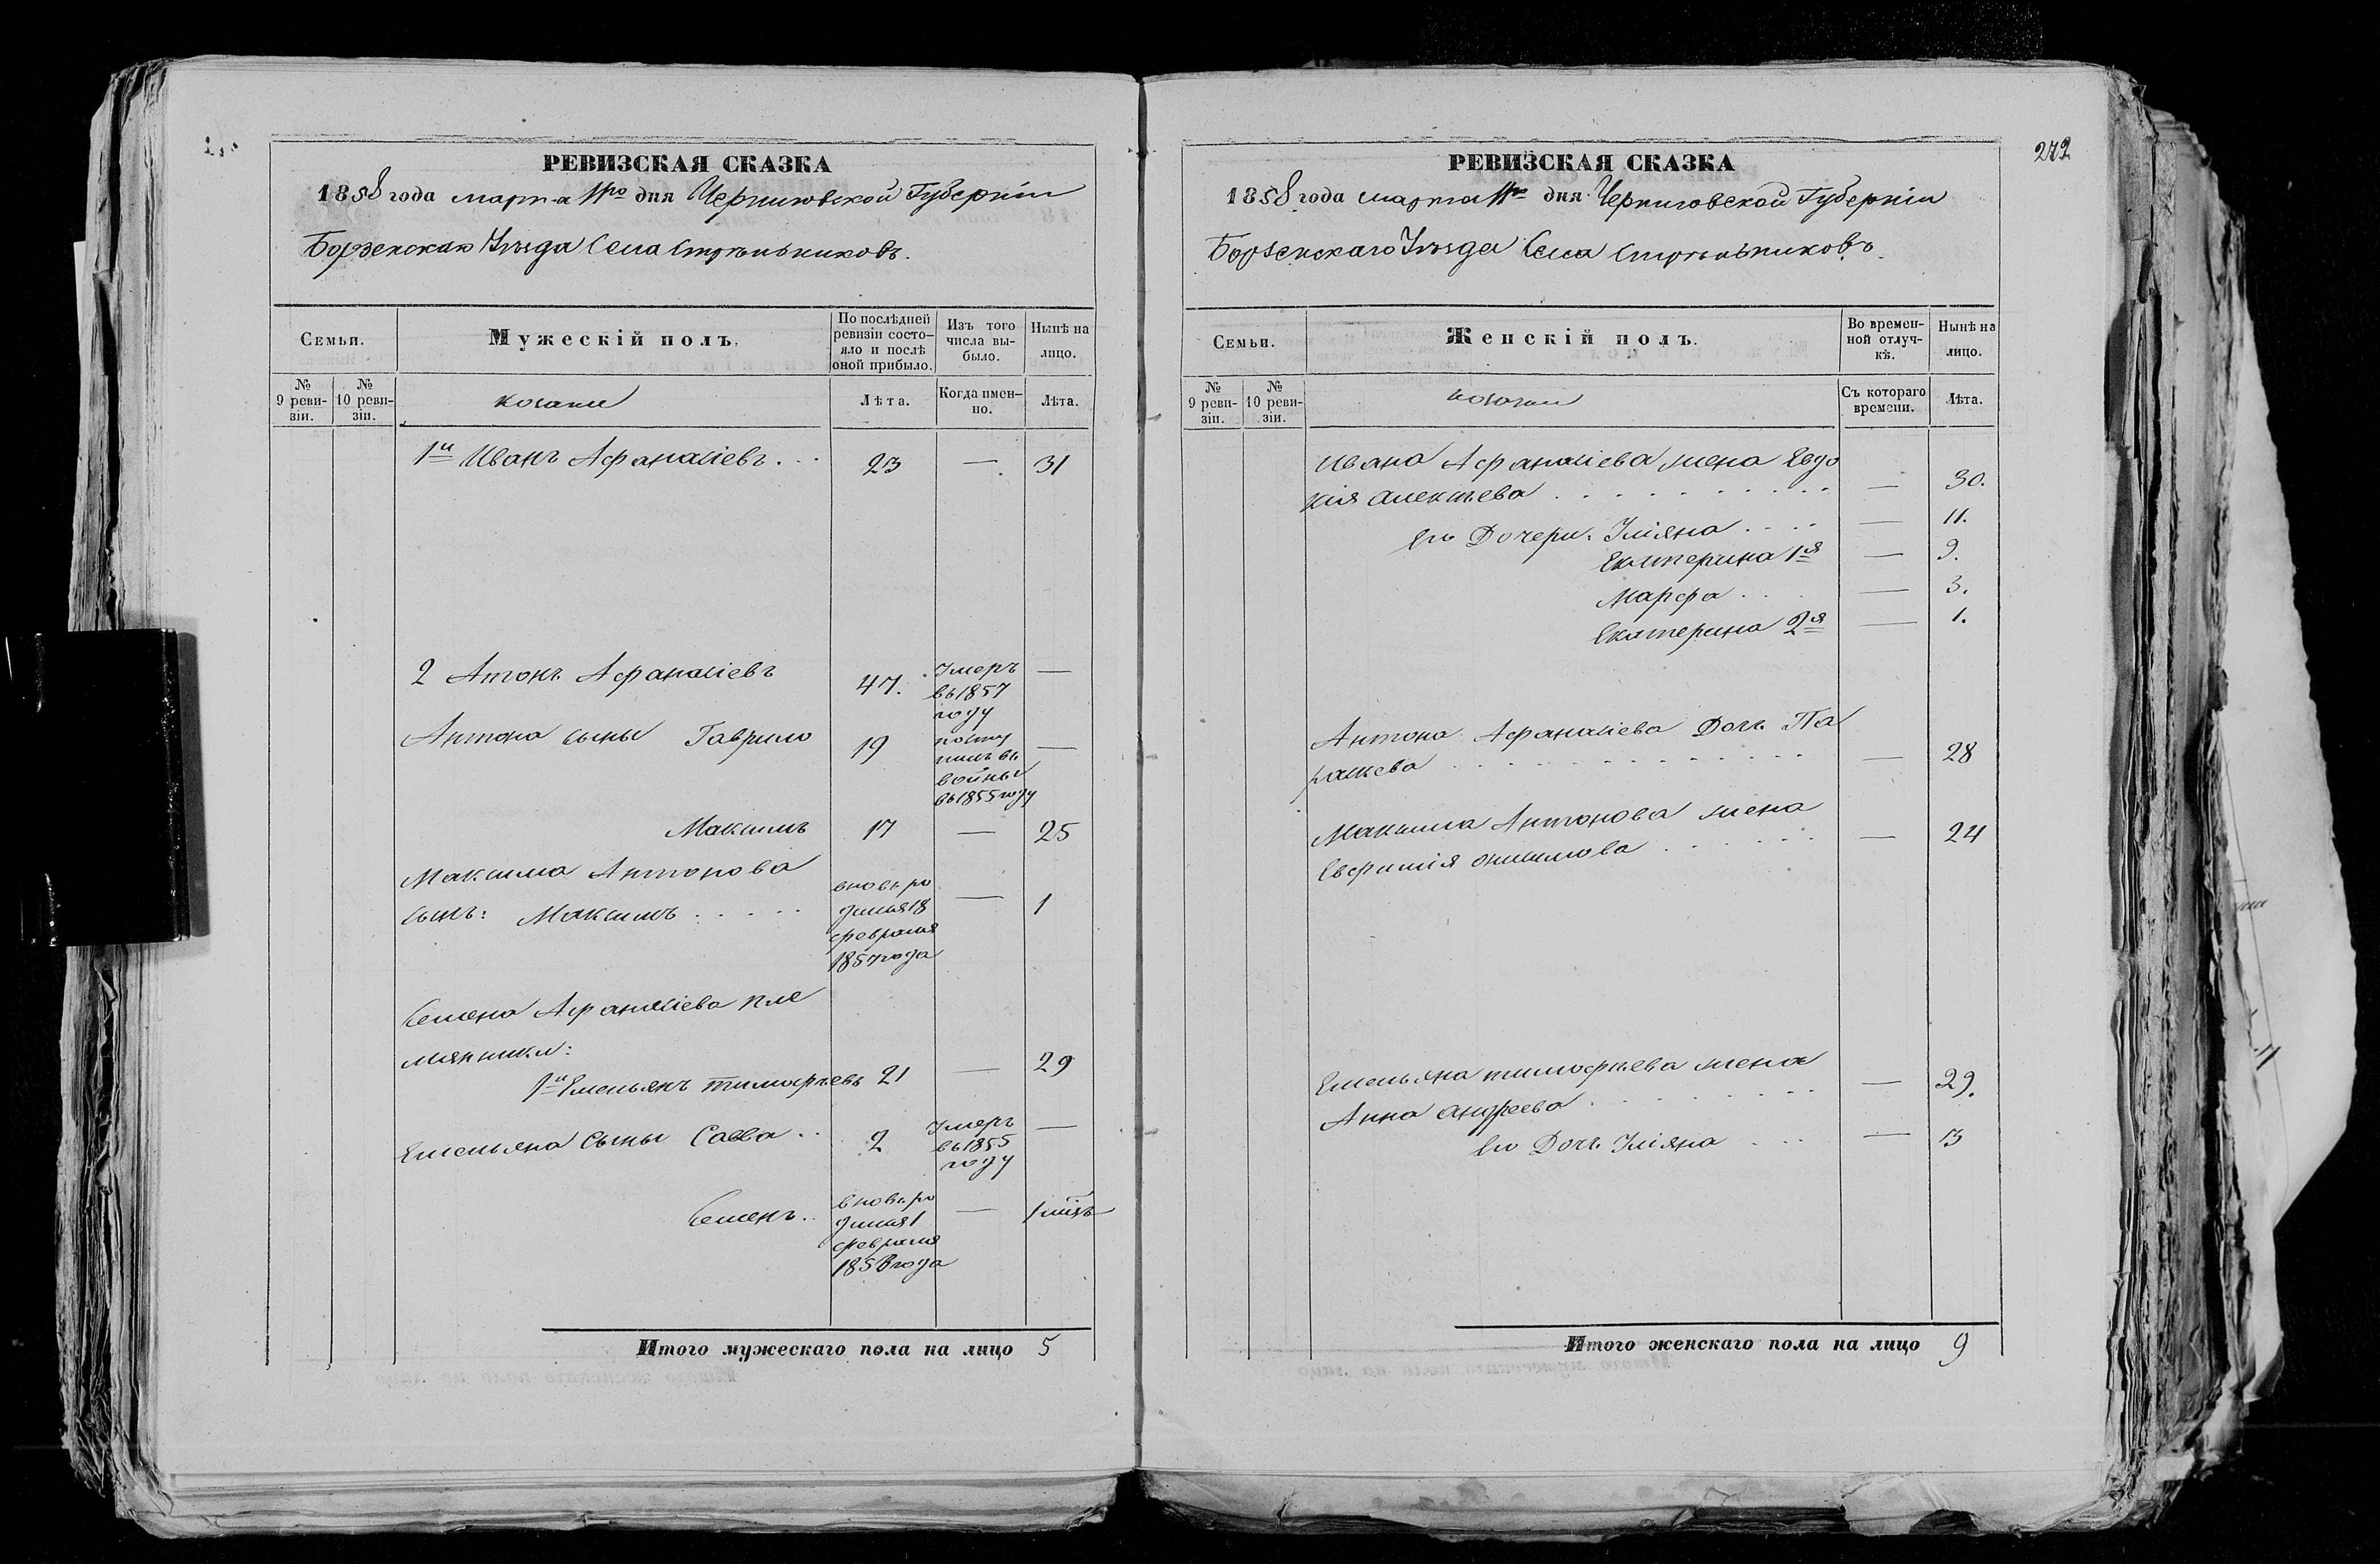 РЕВИЗСКАЯ СКАЗКА
1858 года марта 11го дня Черниговской Губерніи
Борзенскаго Уѣзда Села Стрѣльниковъ.
Семьи.
Мужескій полъ.
По послѣдней ревизіи состо-
яло и послѣ
оной прибыло.
Изъ того
числа вы-
было.
Нынѣ на
лицо.
№
9 реви-
зіи.
№
10 реви-
зіи.
козаки
Лѣта.
Когда имен-
но.
Лѣта.
1й Иванъ Афанасіевъ . . . 23 — 31
2 Антонъ Афанасіевъ 47. Умеръ —
въ 1857
году
Антона сыны Гаврило 19 посту —
пилъ въ
войны
въ 1855 году
Максимъ 17 — 25
Максима Антонова
сынъ: Максимъ . . . . . вновь ро — 1
дился 18
февраля
1857 года
Семена Афанасіева пле
мянники:
1й Емельянъ тимофѣевъ 21 — 29
Емельяна Сыны Савва . . 2 Умеръ —
въ 1855
году
Семенъ . . вновь ро — 1 мѣся
дился 1
февраля
1858 года
Итого мужескаго пола на лицо 5
272
РЕВИЗСКАЯ СКАЗКА
1858 года марта 11го дня Черниговской Губерніи
Борзенскаго Уѣзда Села Стрѣльниковъ.
Семьи.
Женскій полъ.
Во времен-
ной отлуч-
кѣ.
Нынѣ на
лицо.
№
9 реви-
зіи.
№
10 реви-
зіи.
козаки
Съ котораго
времени.
Лѣта.
Ивана Афанасіева жена Евдо
кія алексѣева . . . . . . . . . . — 30.
Его Дочери: Уліяна . . . . — 11.
Екатерина 1я — 9.
Марфа . . . — 3.
Екатерина 2я — 1.
Антона Афанасіева Дочь Па
раскева . . . . . . . . . . . . . — 28
Максима Антонова жена
Евфимія онисимова . . . . . . — 24
Емельяна тимофѣева жена
Анна андреева . . . . . . . . . — 29.
Его Дочь Уліяна . . . . — 13
Итого женскаго пола на лицо 9